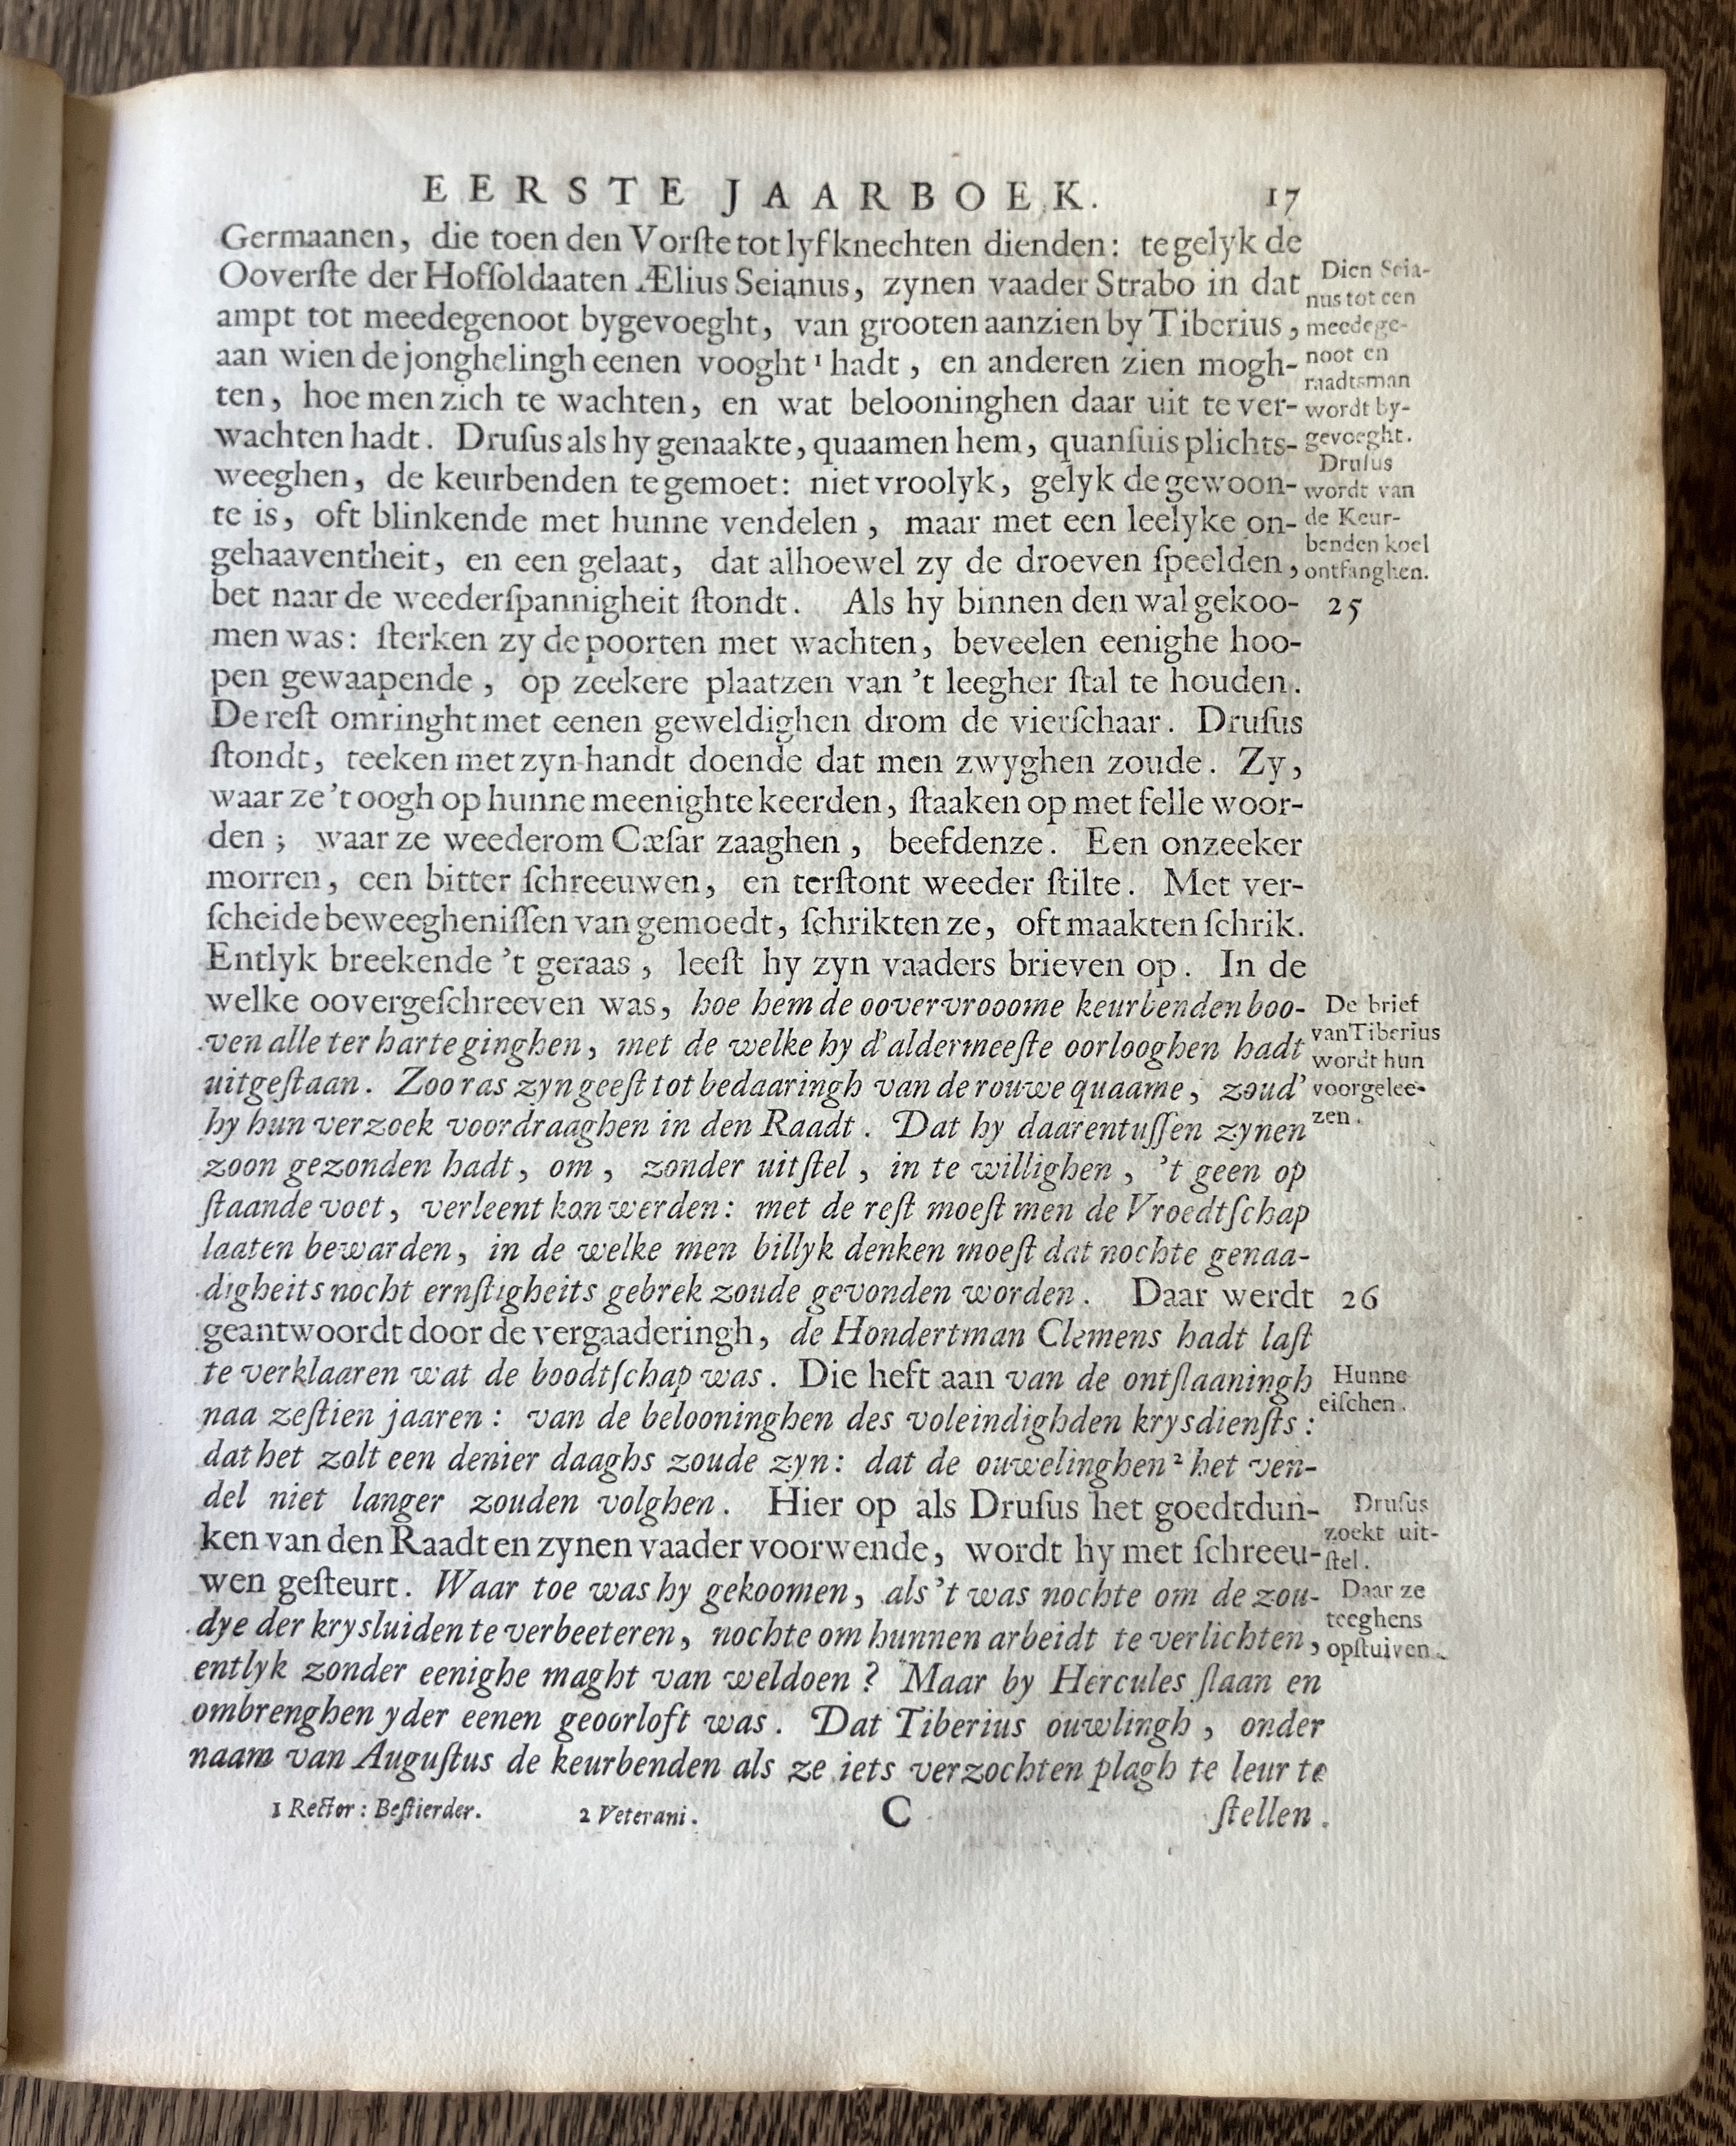 EERSTE JAARBOEK. 17
Germaanen, die toen den Vorſte tot lyfknechten dienden: tegelyk de
Ooverſte der Hofſoldaaten Ælius Seianus, zynen vaader Strabo in dat
ampt tot meedegenoot bygevoeght, van grooten aanzien by Tiberius,
aan wien de jonghelingh eenen vooght ¹ hadt, en anderen zien mogh-
ten, hoe men zich te wachten, en wat belooninghen daar uit te ver-
wachten hadt. Druſus als hy genaakte, quaamen hem, quanſuis plichts-
weeghen, de keurbenden tegemoet: niet vroolyk, gelyk de gewoon-
te is, oft blinkende met hunne vendelen, maar met een leelyke on-
gehaaventheit, en een gelaat, dat alhoewel zy de droeven ſpeelden,
bet naar de weederſpannigheit ſtondt. Als hy binnen den wal gekoo-
men was: ſterken zy de poorten met wachten, beveelen eenighe hoo-
pen gewaapende, op zeekere plaatzen van 't leegher ſtal te houden.
De reſt omringht met eenen geweldighen drom de vierſchaar. Druſus
ſtondt, teeken met zyn handt doende dat men zwyghen zoude. Zy,
waar ze 't oogh op hunne meenighte keerden, ſtaaken op met felle woor-
den; waar ze weederom Cæſar zaaghen, beefdenze. Een onzeeker
morren, een bitter ſchreeuwen, en terſtont weeder ſtilte. Met ver-
ſcheide beweegheniſſen van gemoedt, ſchrikten ze, oft maakten ſchrik.
Entlyk breekende 't geraas, leeſt hy zyn vaaders brieven op. In de
welke oovergeſchreeven was, hoe hem de oovervrooome keurbenden boo-
ven alle ter harte ginghen, met de welke hy d'aldermeeſte oorlooghen hadt
uitgeſtaan. Zoo ras zyn geeſt tot bedaaringh van de rouwe quaame, zoud'
hy hun verzoek voordraaghen in den Raadt. Dat hy daarentuſſen zynen
zoon gezonden hadt, om, zonder uitſtel, in te willighen, 't geen op
ſtaande voet, verleent kon werden: met de reſt moeſt men de Vroedtſchap
laaten bewarden, in de welke men billyk denken moeſt dat nochte genaa-
digheits nocht ernſtigheits gebrek zoude gevonden worden. Daar werdt
geantwoordt door de vergaaderingh, de Hondertman Clemens hadt laſt
te verklaaren wat de boodtſchap was. Die heft aan van de ontſlaaningh
naa zeſtien jaaren: van de belooninghen des voleindighden krysdienſts:
dat het zolt een denier daaghs zoude zyn: dat de ouwelinghen ² het ven-
del niet langer zouden volghen. Hier op als Druſus het goedtdun-
ken van den Raadt en zynen vaader voorwende, wordt hy met ſchreeu-
wen geſteurt. Waar toe was hy gekoomen, als 't was nochte om de zou-
dye der krysluiden te verbeeteren, nochte om hunnen arbeidt te verlichten,
entlyk zonder eenighe maght van weldoen? Maar by Hercules ſlaan en
ombrenghen yder eenen geoorloft was. Dat Tiberius ouwlingh, onder
naam van Auguſtus de keurbenden als ze iets verzochten plagh te leur te
1 Rector: Beſtierder. 2 Veterani. C ſtellen.
Dien Seia-
nus tot een
meedege-
noot en
raadtsman
wordt by-
gevoeght.
Druſus
wordt van
de Keur-
benden koel
ontfanghen.
25
De brief
van Tiberius
wordt hun
voorgelee-
zen.
26
Hunne
eiſchen.
Druſus
zoekt uit-
ſtel.
Daar ze
teeghens
opſtuiven.